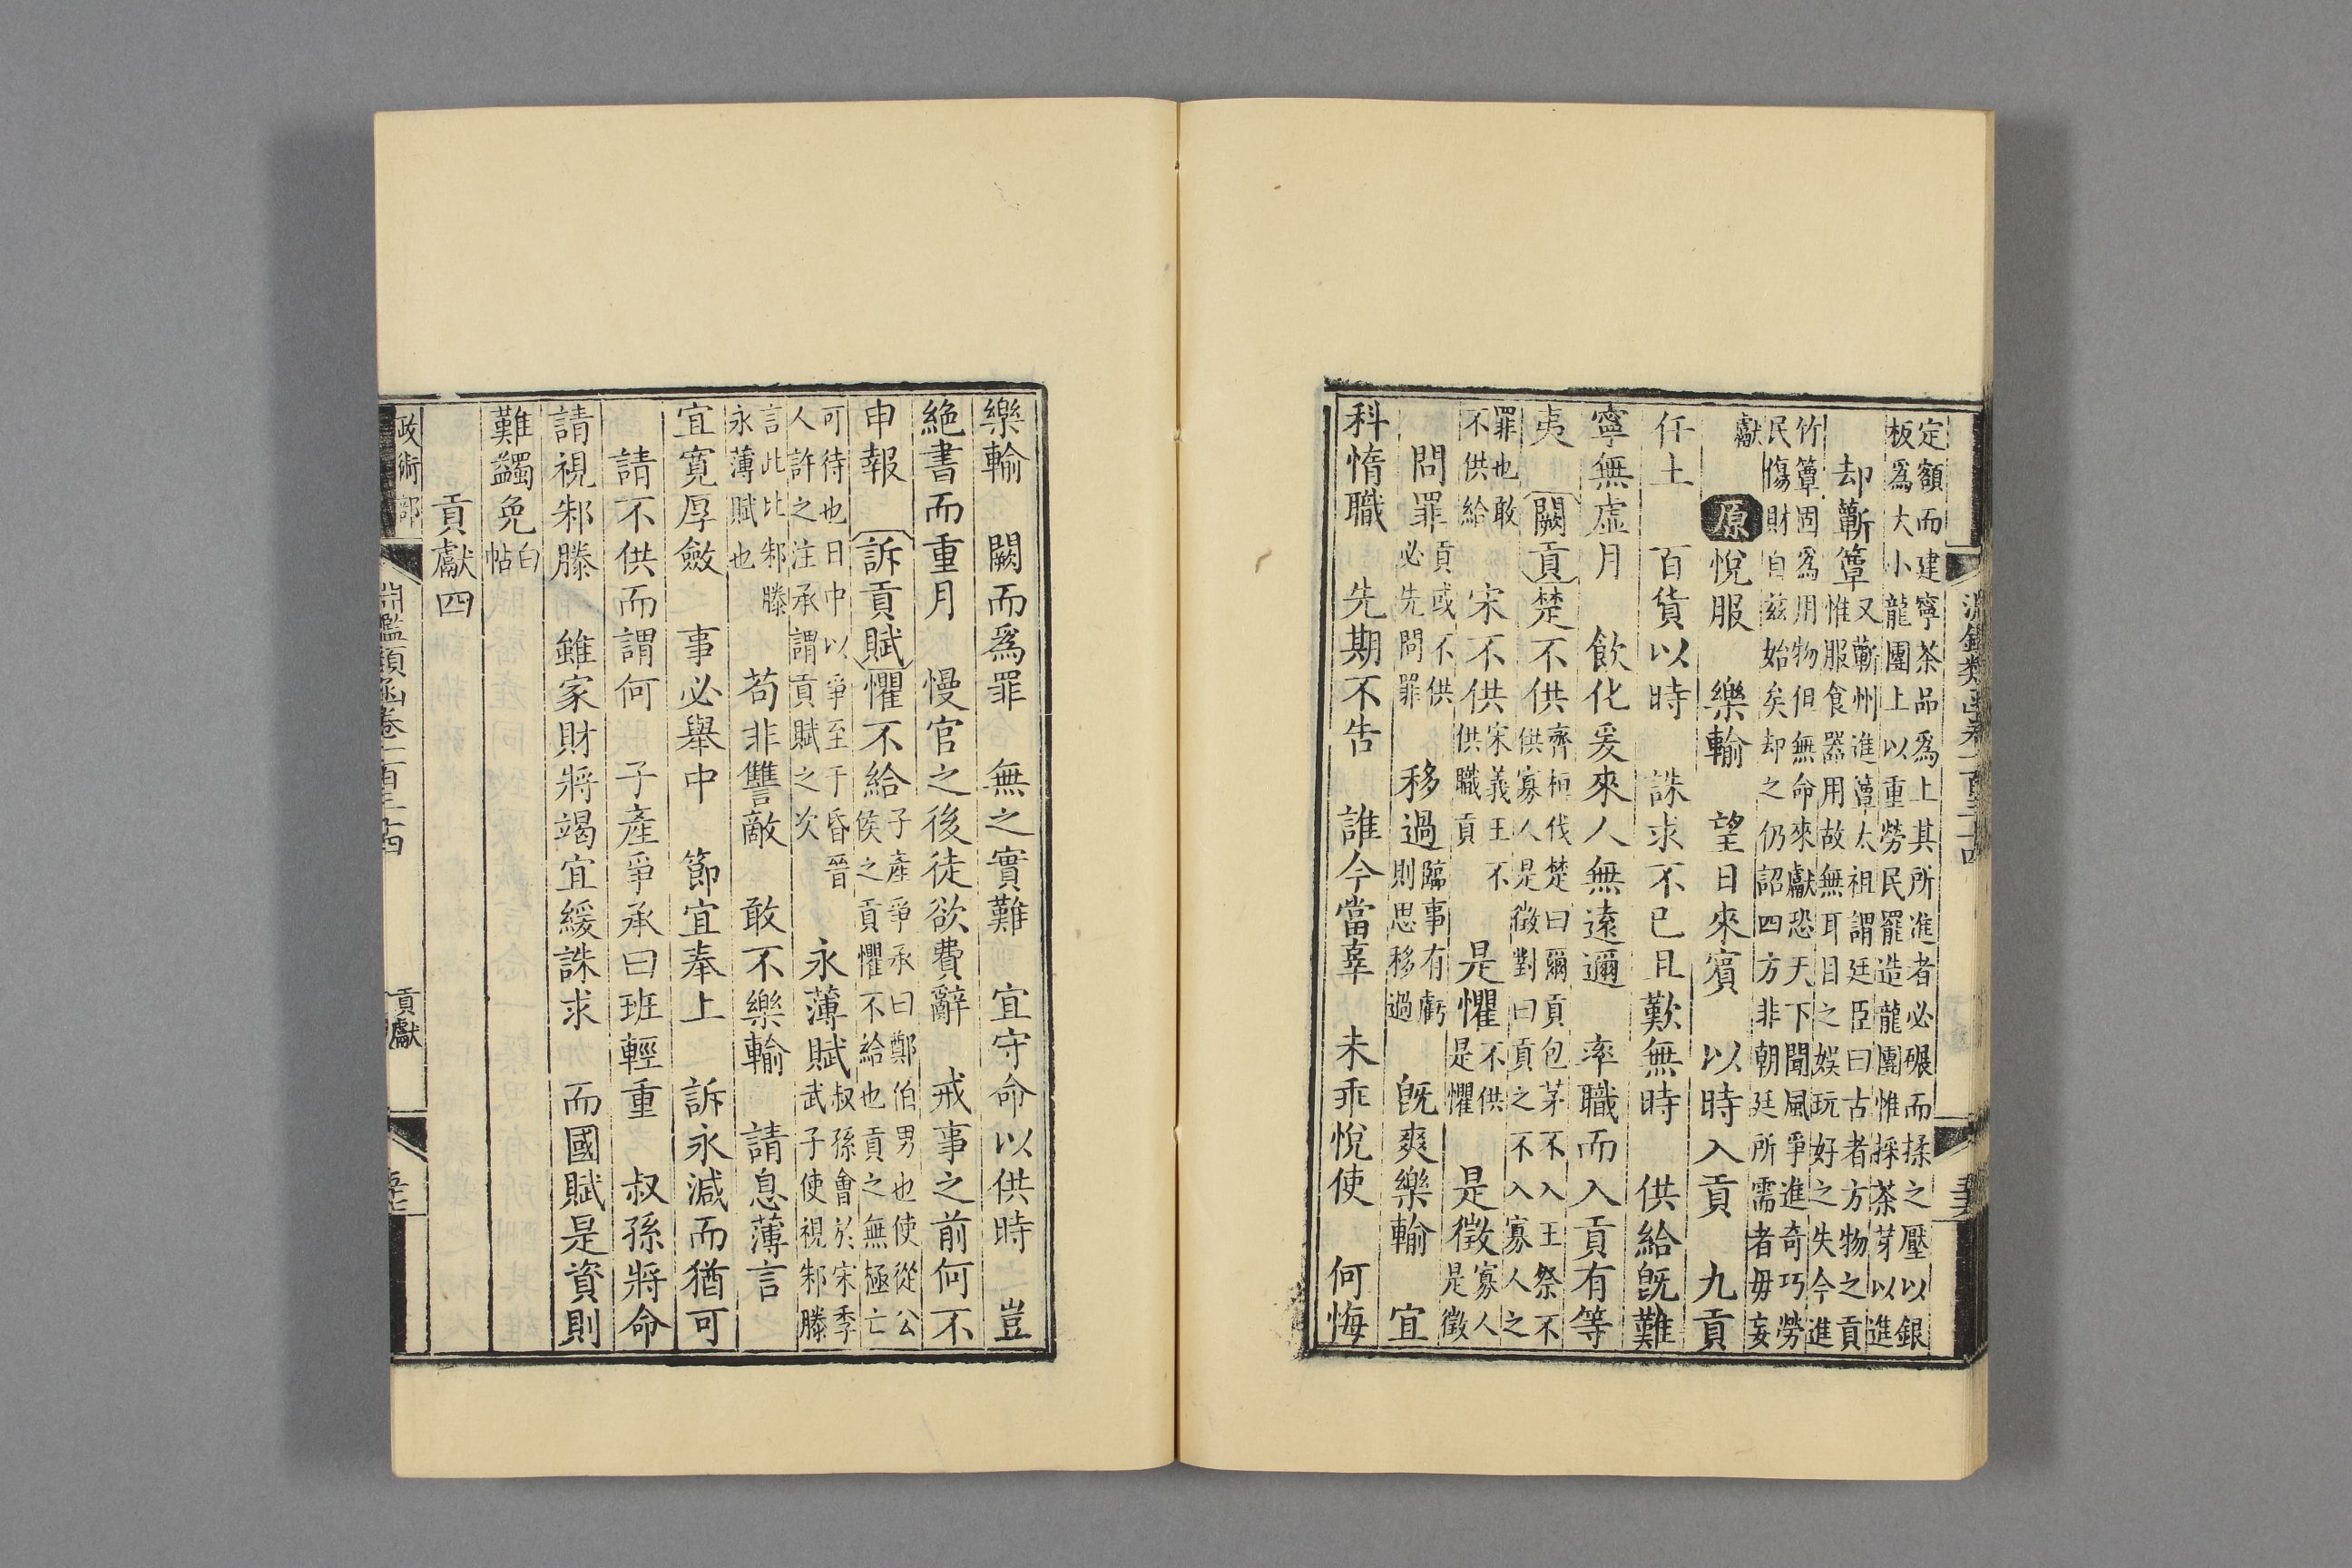 定額而建寧茶品爲上其所進者必碾而揉之壓以銀
板爲大小龍團上以重勞民罷造龍團惟採茶芽以進
却蘄簟又蘄州進簟太祖謂廷臣曰古者方物之貢
惟服食器用故無耳目之娛玩好之失今進
竹簟固爲用物但無命來獻恐天下聞風爭進奇巧勞
民傷財自茲始矣却之仍詔四方非朝廷所需者毋妄
獻
原悅服 樂輸 望日來賓 以時入貢 九貢
任土 百貨以時 誅求不已且歎無時 供給旣難
寧無虛月 飲化爰來人無遠邇 率職而入貢有等
夷 闕貢楚不供齊桓伐楚曰爾貢包茅不入王祭不
供寡人是徵對曰貢之不入寡人之
罪也敢
不供給 宋不供宋義王不
供職貢 是懼不供
是懼 是徵寡人
是徵
問罪貢或不供
必先問罪 移過臨事有虧
則思移過 旣爽樂輸 宜
科惰職 先期不告 誰今當辜 未乖悅使 何悔
樂輸 闕而爲罪 無之實難 宜守命以供時 豈
絶書而重月 慢官之後徒欲費辭 戒事之前何不
申報 訴貢賦懼不給子產爭承曰鄭伯男也使從公
侯之貢懼不給也貢之無極亡
可待也日中以爭至于昏晉
人許之注承謂貢賦之次 永薄賦叔孫會於宋季
武子使視邾滕
言此比邾滕
永薄賦也 苟非讐敵 敢不樂輸 請息薄言
宜寛厚斂 事必舉中 節宜奉上 訴永減而猶可
請不供而謂何 子產爭承曰班輕重 叔孫將命
請視邾滕 雖家財將竭宜緩誅求 而國賦是資則
難蠲免白
帖
貢獻四
政術部
淵鑑類函卷一百三十四
貢獻